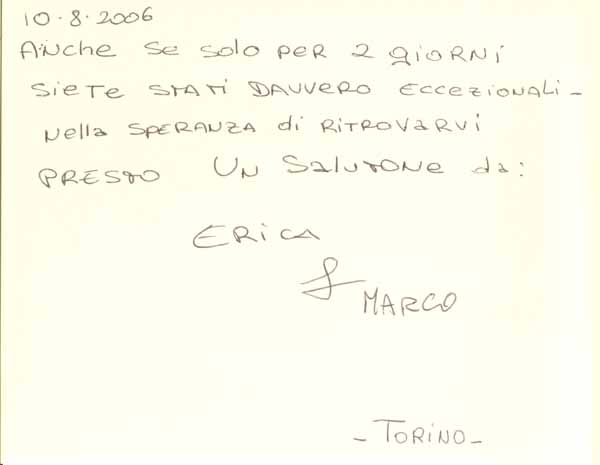 10.8.2006
Anche se solo per 2 giorni
siete stati davvero eccezionali -
nella speranza di ritrovarvi
presto un salutone da:
ERICA
&
MARCO
- TORINO -